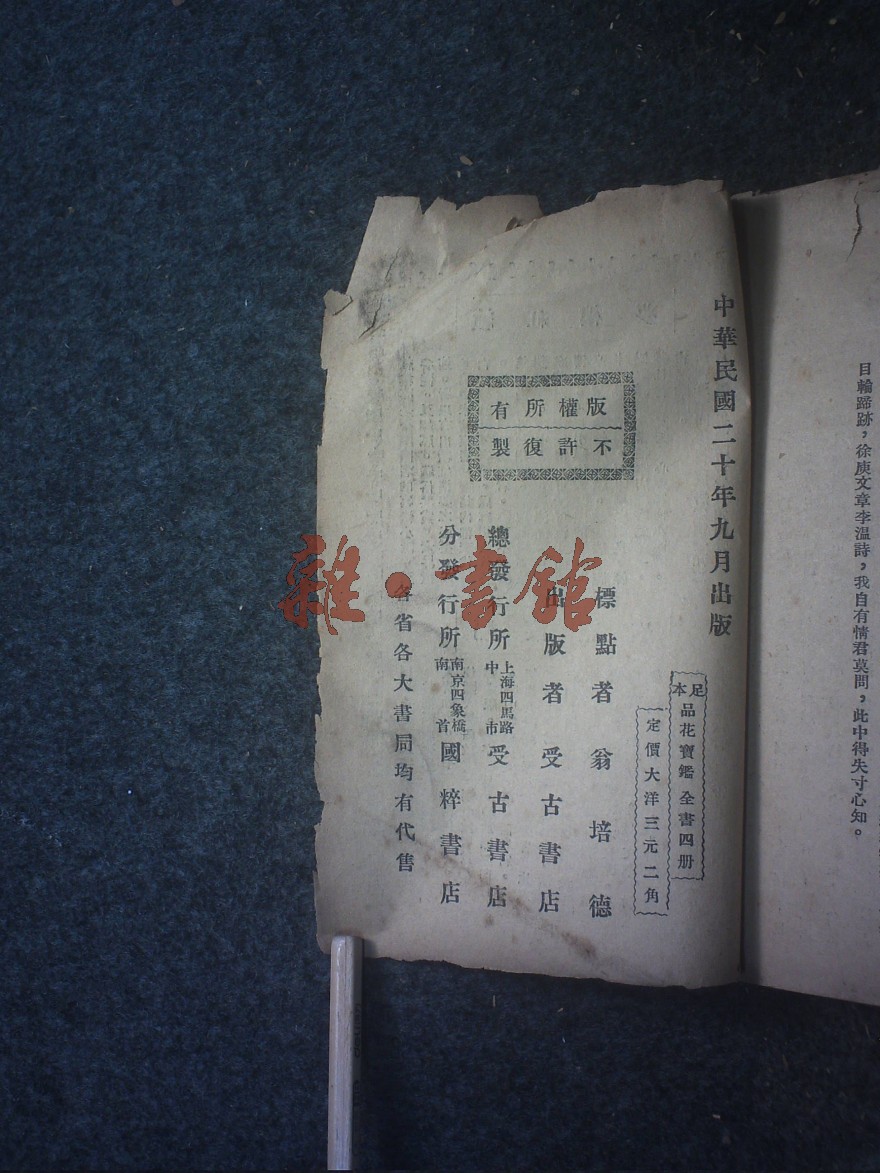 目輪蹄跡，徐庾文章李溫詩，我自有情君莫問，此中得失寸心知。
中華民國二十年九月出版
足本品花寶鑑全書四册
定價大洋三元二角
版權所有
不許復製
標點者翁培德
出版者受古書店
總發行所上海四馬路中市受古書店
分發行所南京四象橋南首國粹書店
各省各大書局均有代售
雜·書館